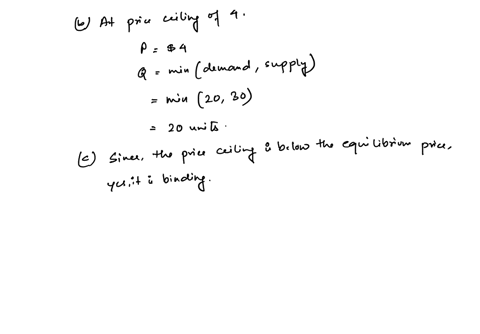 (b) At price ceiling of 4.
P = $4
Q = min (demand, supply)
= min (20, 30)
= 20 units.
(c) Since, the price ceiling is below the equilibrium price,
yes, it is binding.